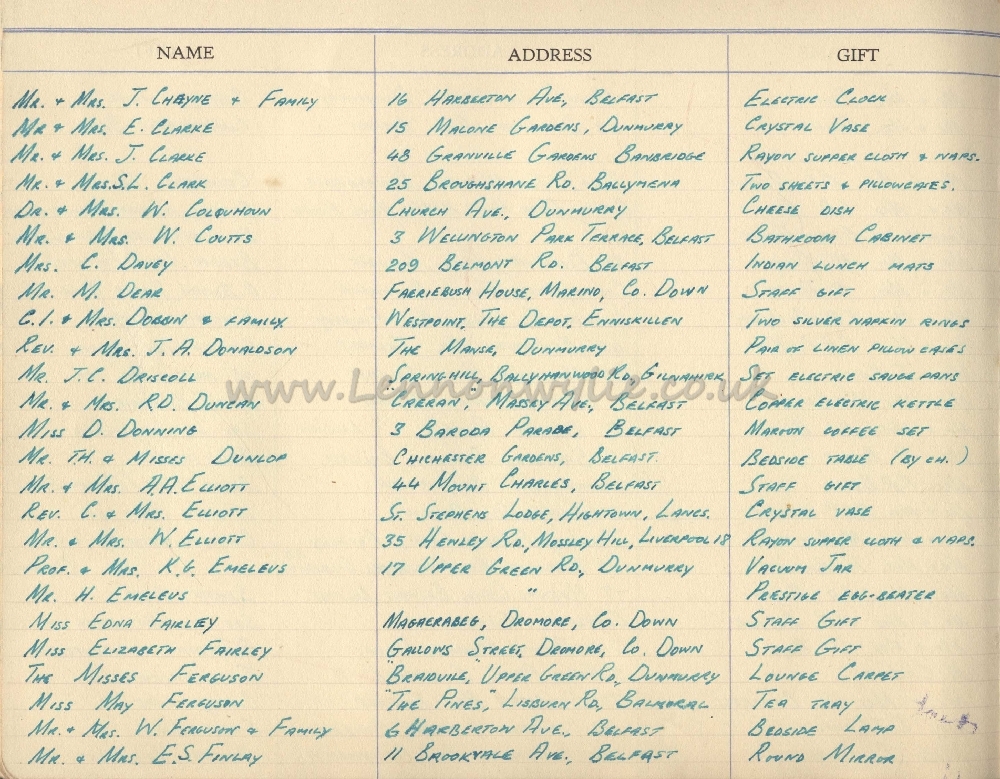 NAME ADDRESS GIFT
Mr. & Mrs. J. Cheyne & Family 16 Harberton Ave., Belfast Electric Clock
Mr & Mrs. E. Clarke 15 Malone Gardens, Dunmurry Crystal Vase
Mr. & Mrs. J. Clarke 48 Granville Gardens Banbridge Rayon supper cloth & naps.
Mr. & Mrs. S.L. Clark 25 Broughshane Rd. Ballymena Two sheets & pillowcases.
Dr. & Mrs. W. Colquhoun Church Ave., Dunmurry Cheese dish
Mr. & Mrs. W. Coutts 3 Wellington Park Terrace, Belfast Bathroom Cabinet
Mrs. C. Davey 209 Belmont Rd. Belfast Indian lunch mats
Mr. M. Dear Faeriebush House, Marino, Co. Down Staff gift
C.I. & Mrs. Dobbin & family. Westpoint, The Depot, Enniskillen Two silver napkin rings
Rev. & Mrs. J.A. Donaldson The Manse, Dunmurry Pair of linen pillow cases
Mr. J.C. Driscoll "Springhill," Ballyhanwood Rd, Gilnahirk Set electric saucepans
Mr. & Mrs. R.D. Duncan "Carran", Massey Ave., Belfast Copper electric kettle
Miss D. Donning 3 Baroda Parade, Belfast Maroon coffee set
Mr. T.H. & Misses Dunlop Chichester Gardens, Belfast. Bedside table (by ch.)
Mr. & Mrs. A.A. Elliott 44 Mount Charles, Belfast Staff gift
Rev. C. & Mrs. Elliott St. Stephens Lodge, Hightown, Lancs. Crystal vase
Mr. & Mrs. W. Elliott 35 Henley Rd., Mossley Hill, Liverpool 18 Rayon supper cloth & naps.
Prof. & Mrs. K.G. Emeleus 17 Upper Green Rd., Dunmurry Vacuum Jar
Mr. H. Emeleus " Prestige egg-beater
Miss Edna Fairley Magherabeg, Dromore, Co. Down Staff Gift
Miss Elizabeth Fairley Gallows Street, Dromore, Co. Down Staff Gift
The Misses Ferguson "Braidville," Upper Green Rd., Dunmurry Lounge Carpet
Miss May Ferguson "The Pines," Lisburn Rd, Balmoral Tea tray
Mr. & Mrs. W. Ferguson & Family 6 Harberton Ave., Belfast Bedside Lamp
Mr. & Mrs. E.S. Finlay 11 Brookvale Ave., Belfast Round Mirror
www.Lennonwylie.co.uk